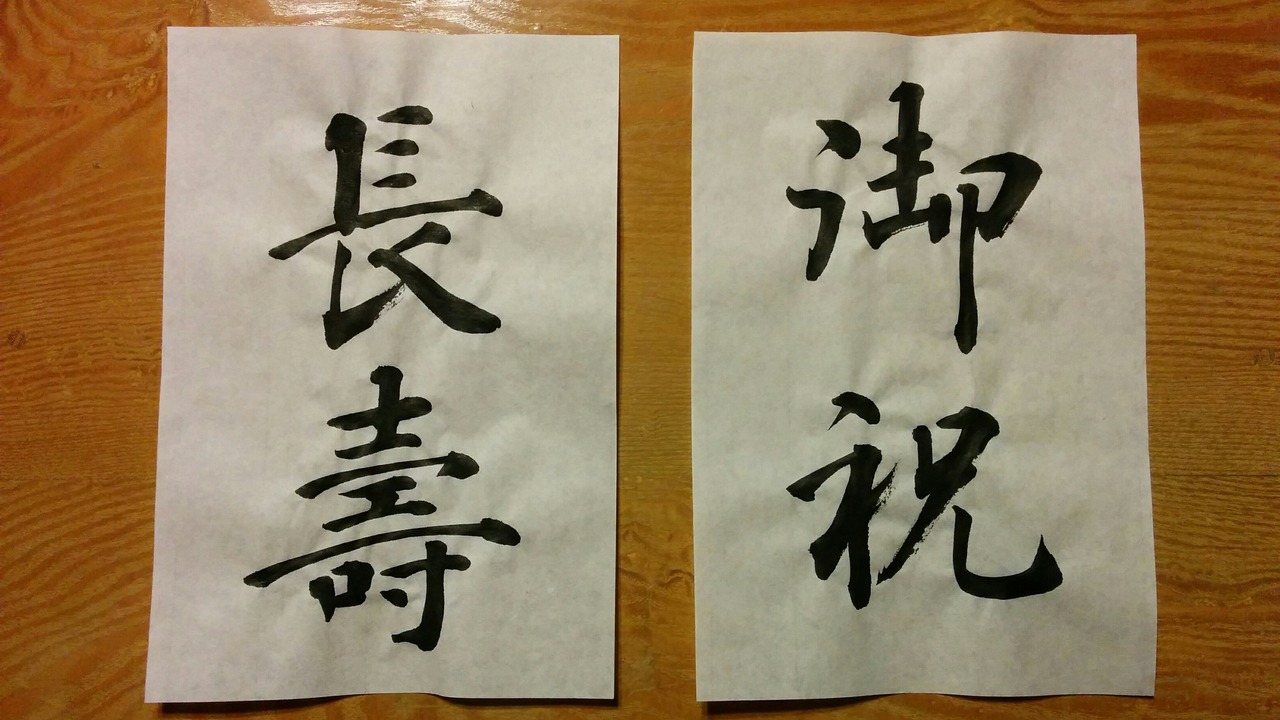 御祝
長壽